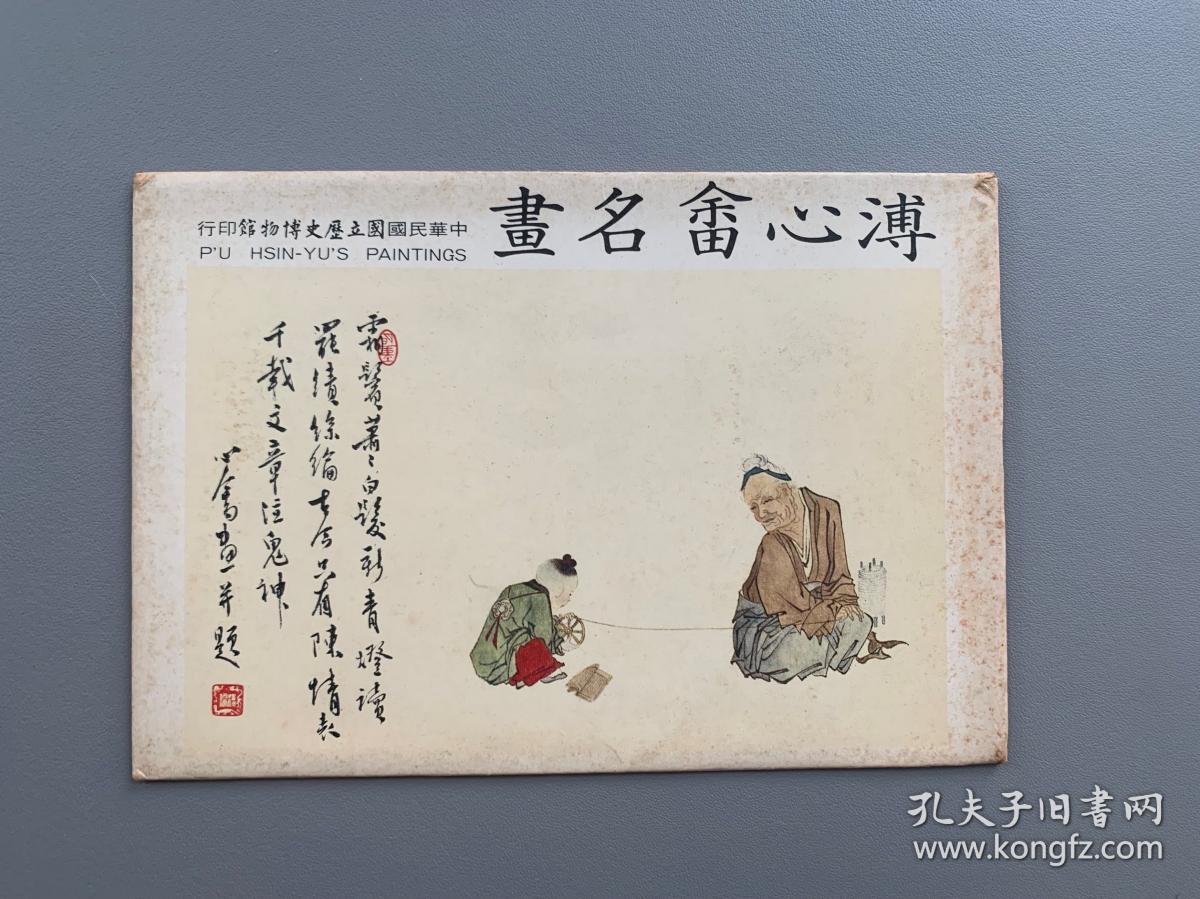 溥心畬名畫
中華民國國立歷史博物館印行
P'U HSIN-YU'S PAINTINGS
霜鬢蕭〻白髮新青燈讀
罷績絲綸古今只有陳情表
千載文章泣鬼神
心畬畫并題
孔夫子旧书网
www.kongfz.com